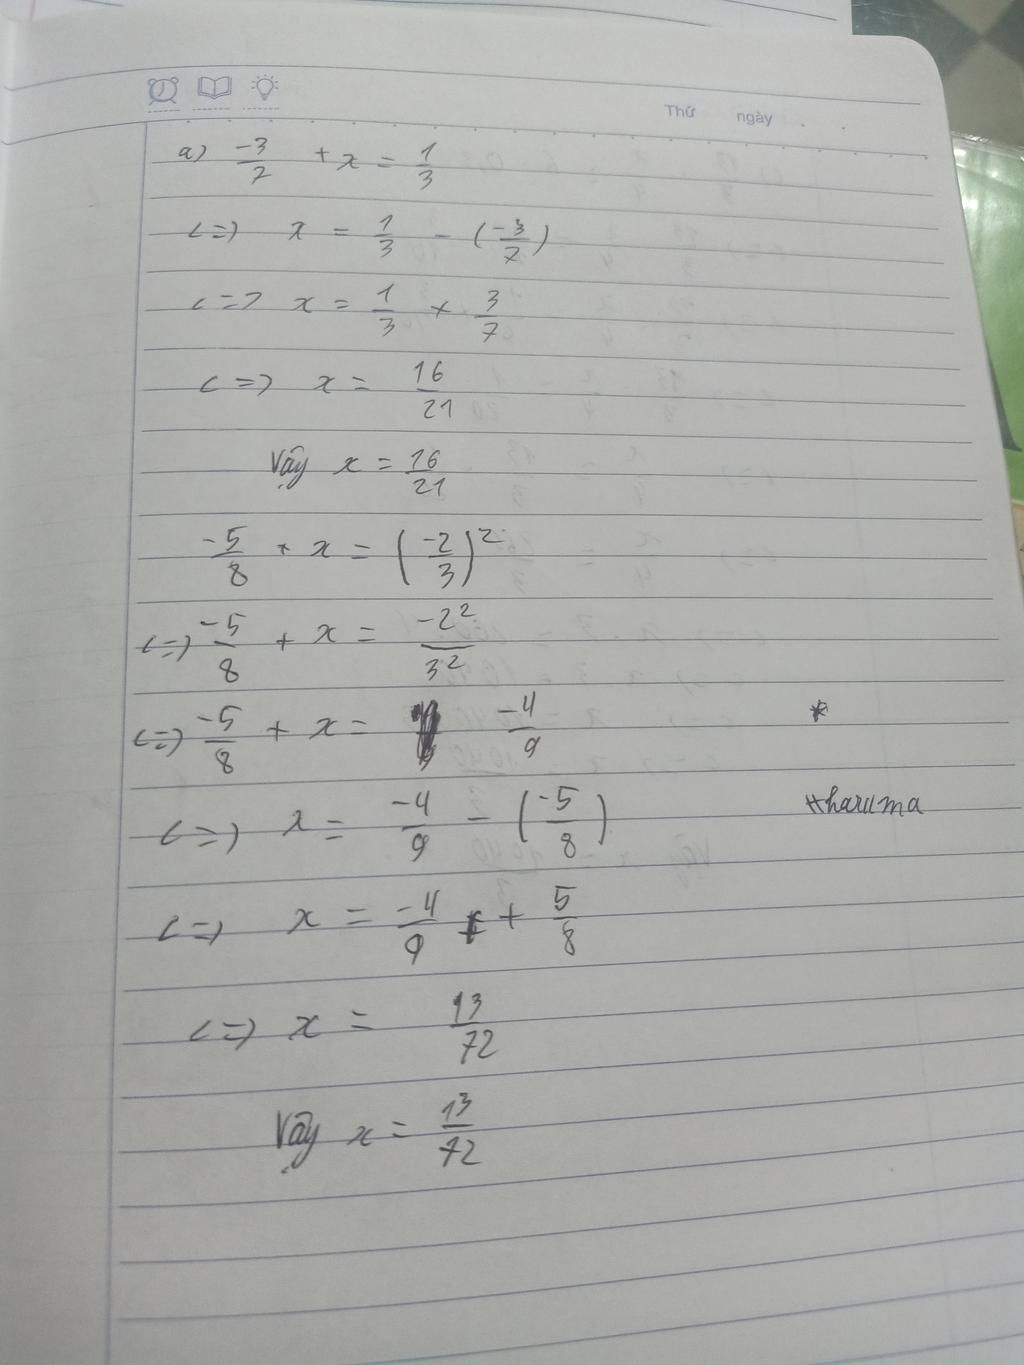 Thứ ngày
a) -3/7 + x = 1/3
<=> x = 1/3 - (-3/7)
<=> x = 1/3 + 3/7
<=> x = 16/21
Vậy x = 16/21
-5/8 + x = (-2/3)²
<=> -5/8 + x = -2²/3²
<=> -5/8 + x = -4/9 *
<=> x = -4/9 - (-5/8)
haruma
<=> x = -4/9 + 5/8
<=> x = 13/72
Vậy x = 13/72